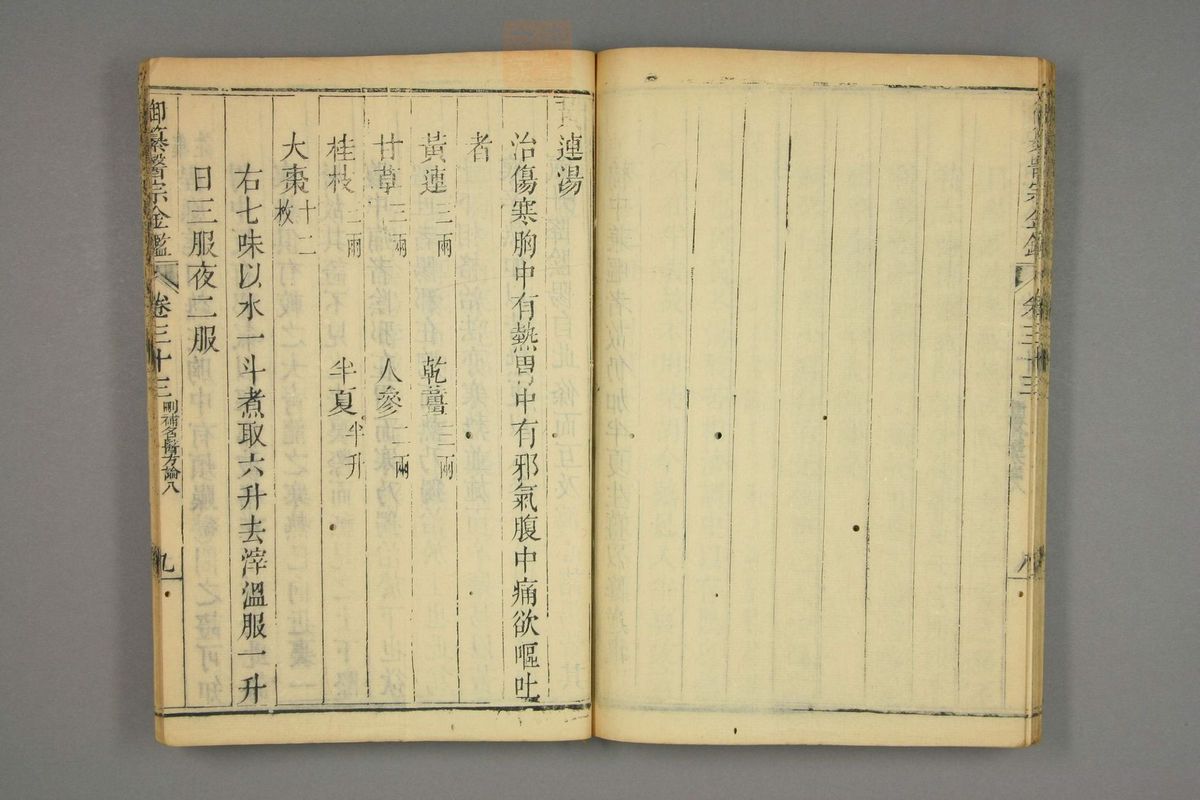 御纂醫宗金鑑 卷三十三 八
黃連湯
治傷寒胸中有熱胃中有邪氣腹中痛欲嘔吐
者
黃連三兩 乾薑三兩
甘草三兩 人參二兩
桂枝三兩 半夏半升
大棗十二枚
右七味以水一斗煮取六升去滓溫服一升
日三服夜二服
御纂醫宗金鑑 卷三十三 刪補名醫方論八 九